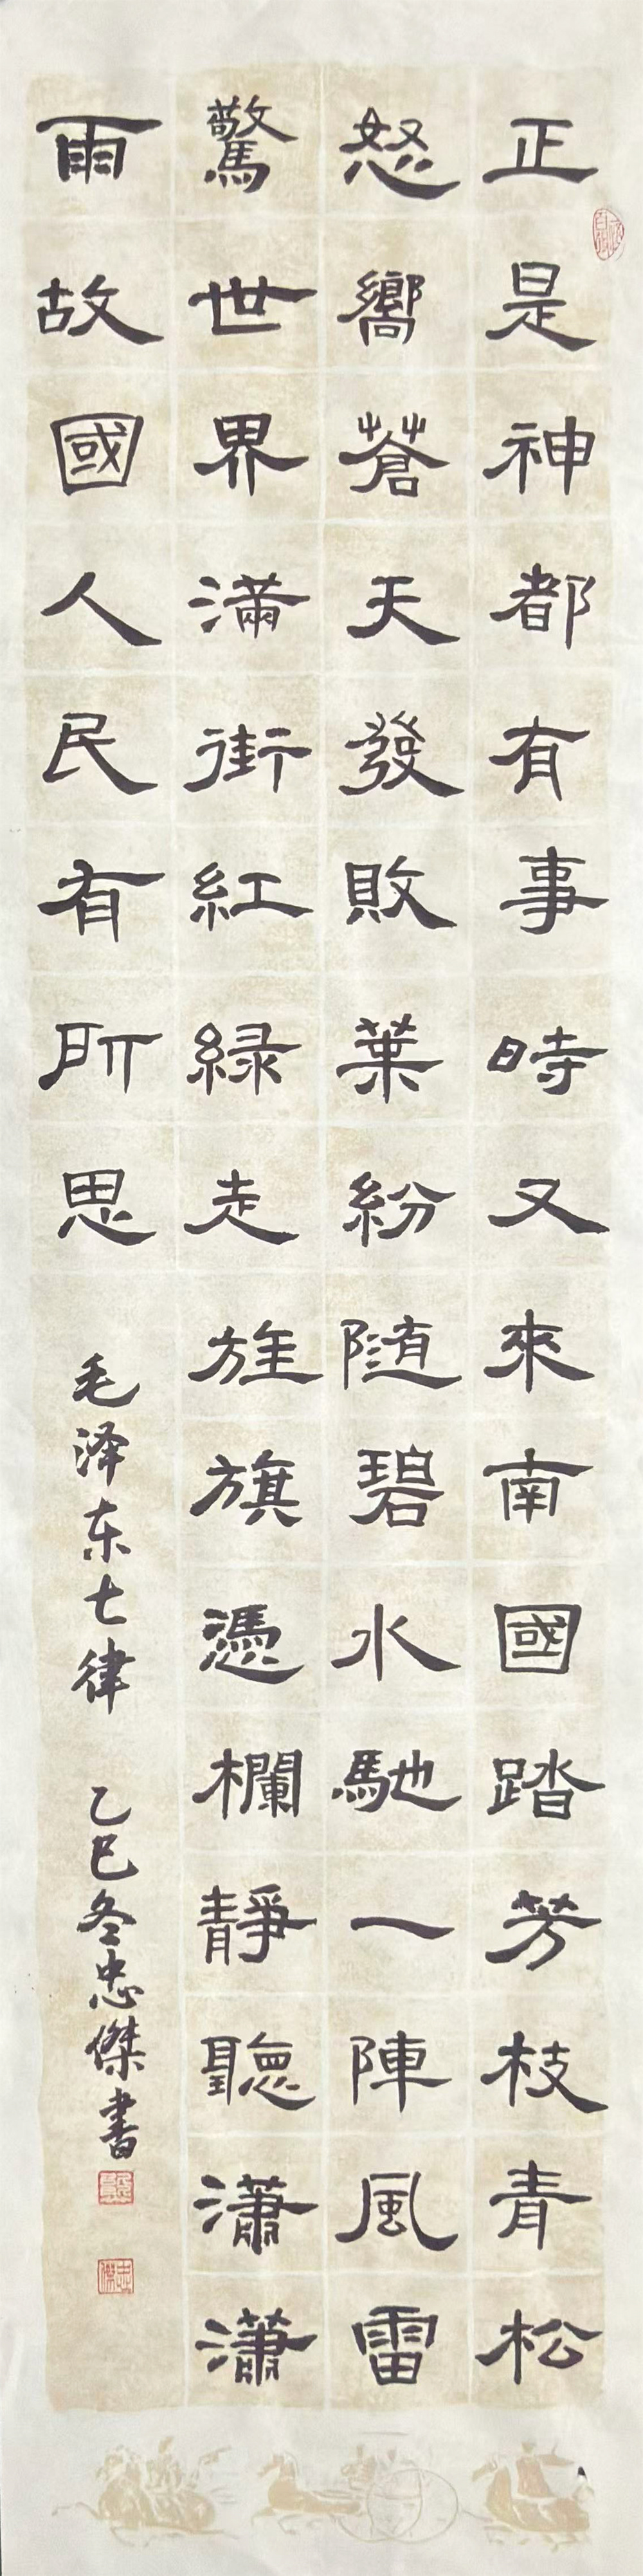 正是神都有事時又來南國踏芳枝青松
怒嚮蒼天發敗葉紛随碧水馳一陣風雷
驚世界滿街紅緑走旌旗憑欄靜聽瀟瀟
雨故國人民有所思
毛泽东七律 乙巳冬忠傑書